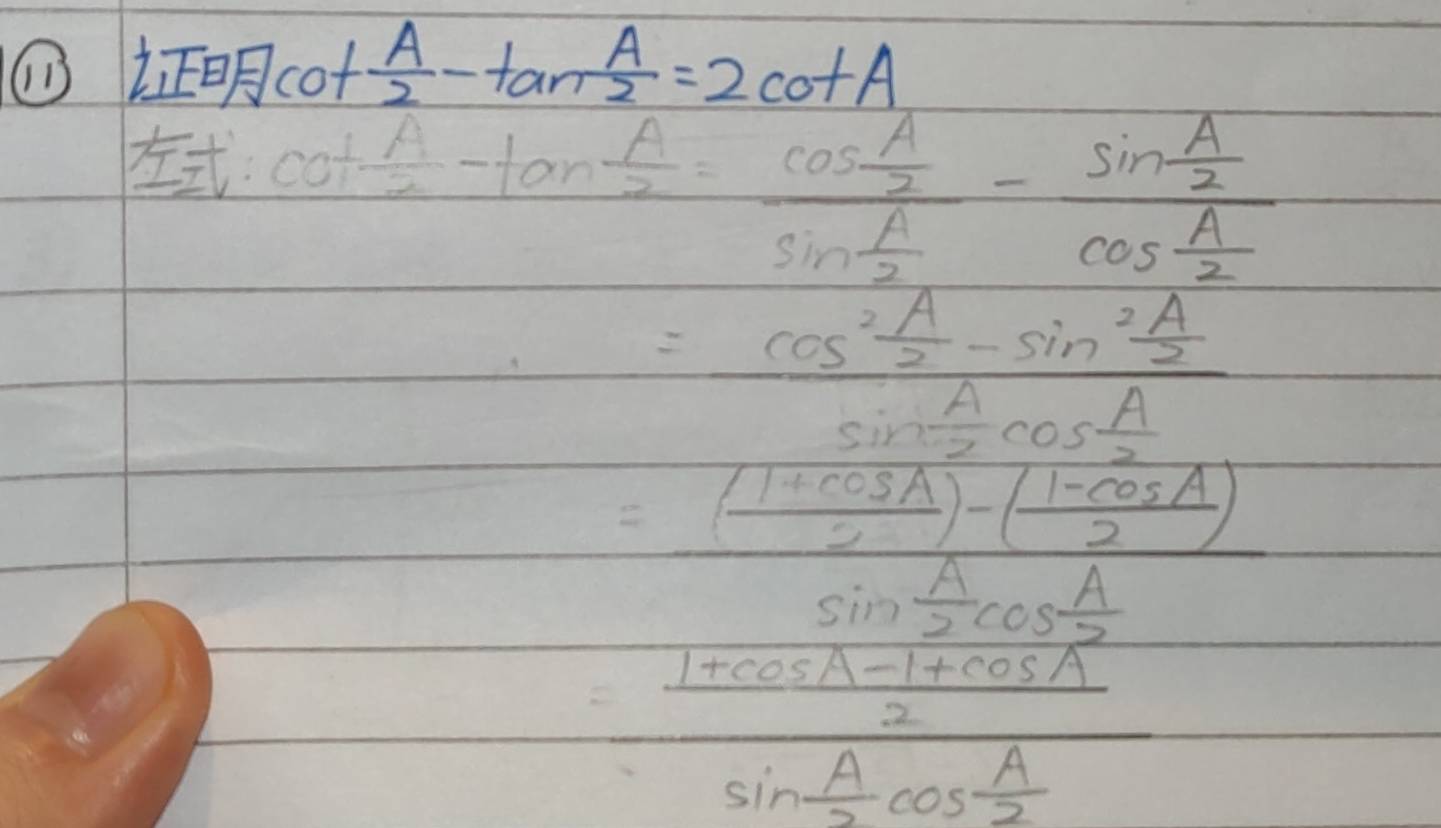 ⑪ 证明cot A/2 - tan A/2 = 2cotA
左式: cot A/2 - tan A/2 = (cos A/2)/(sin A/2) - (sin A/2)/(cos A/2)
= (cos² A/2 - sin² A/2)/(sin A/2 cos A/2)
= (((1+cosA)/2) - ((1-cosA)/2))/(sin A/2 cos A/2)
= ((1+cosA-1+cosA)/2)/(sin A/2 cos A/2)